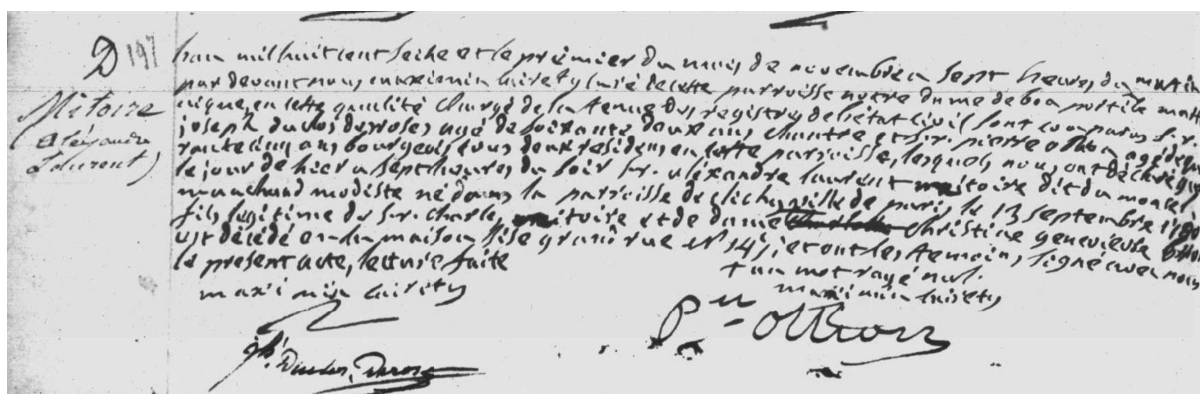 D 197
Mitoire
(aléxandre
Laurent)
L'an mil huit cent seize et le premier du mois de novembre a sept heures du matin
par devant nous maximin curé de cette parroisse notre dame de bon port ile
en cette qualité chargé de la tenue des registres de l'état civil sont comparus Sr.
joseph duclos derose, agé de soixante deux ans, chantre et Sr. pierre othon agé de
rante cinq ans bourgeois, tous deux residens en cette parroisse, lesquels nous ont déclaré que
le jour de hier a sept heures du soir Sr. aléxandre laurent mitoire dit
marchand modiste né dans la parroisse de clichy ville de paris le 13 septembre
fils legitime de Sr. Charles mitoire et de dame Christine genevieve
est décédé en la maison sise grand rue N° 145; et ont les temoins signé avec nous
le present acte, lecture faite
+ un mot rayé nul.
maximin
maximin
Pre Othon
jh. Duclos, Derose